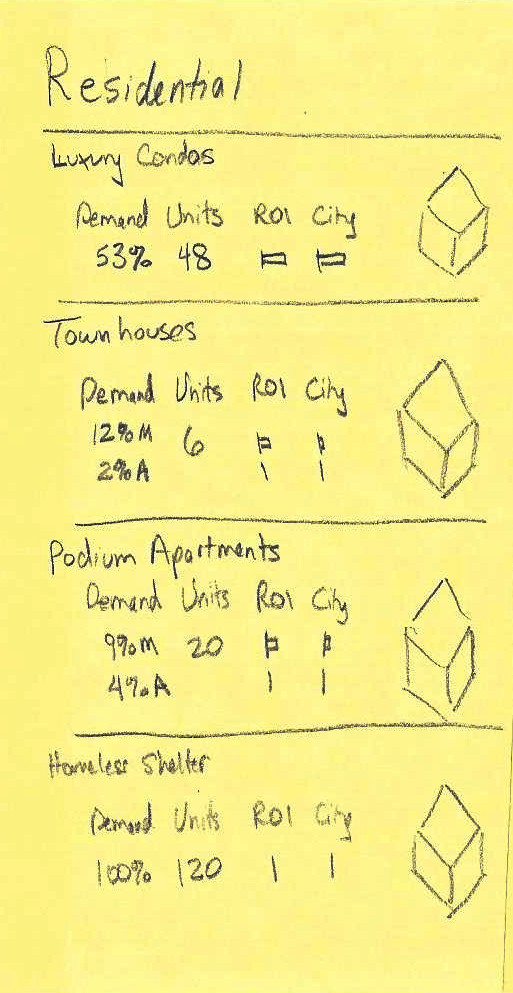 Residential
Luxury Condos
Demand Units ROI City
53% 48
Townhouses
Demand Units ROI City
12% M 6
2% A
Podium Apartments
Demand Units ROI City
9% M 20
4% A
Homeless Shelter
Demand Units ROI City
100% 120